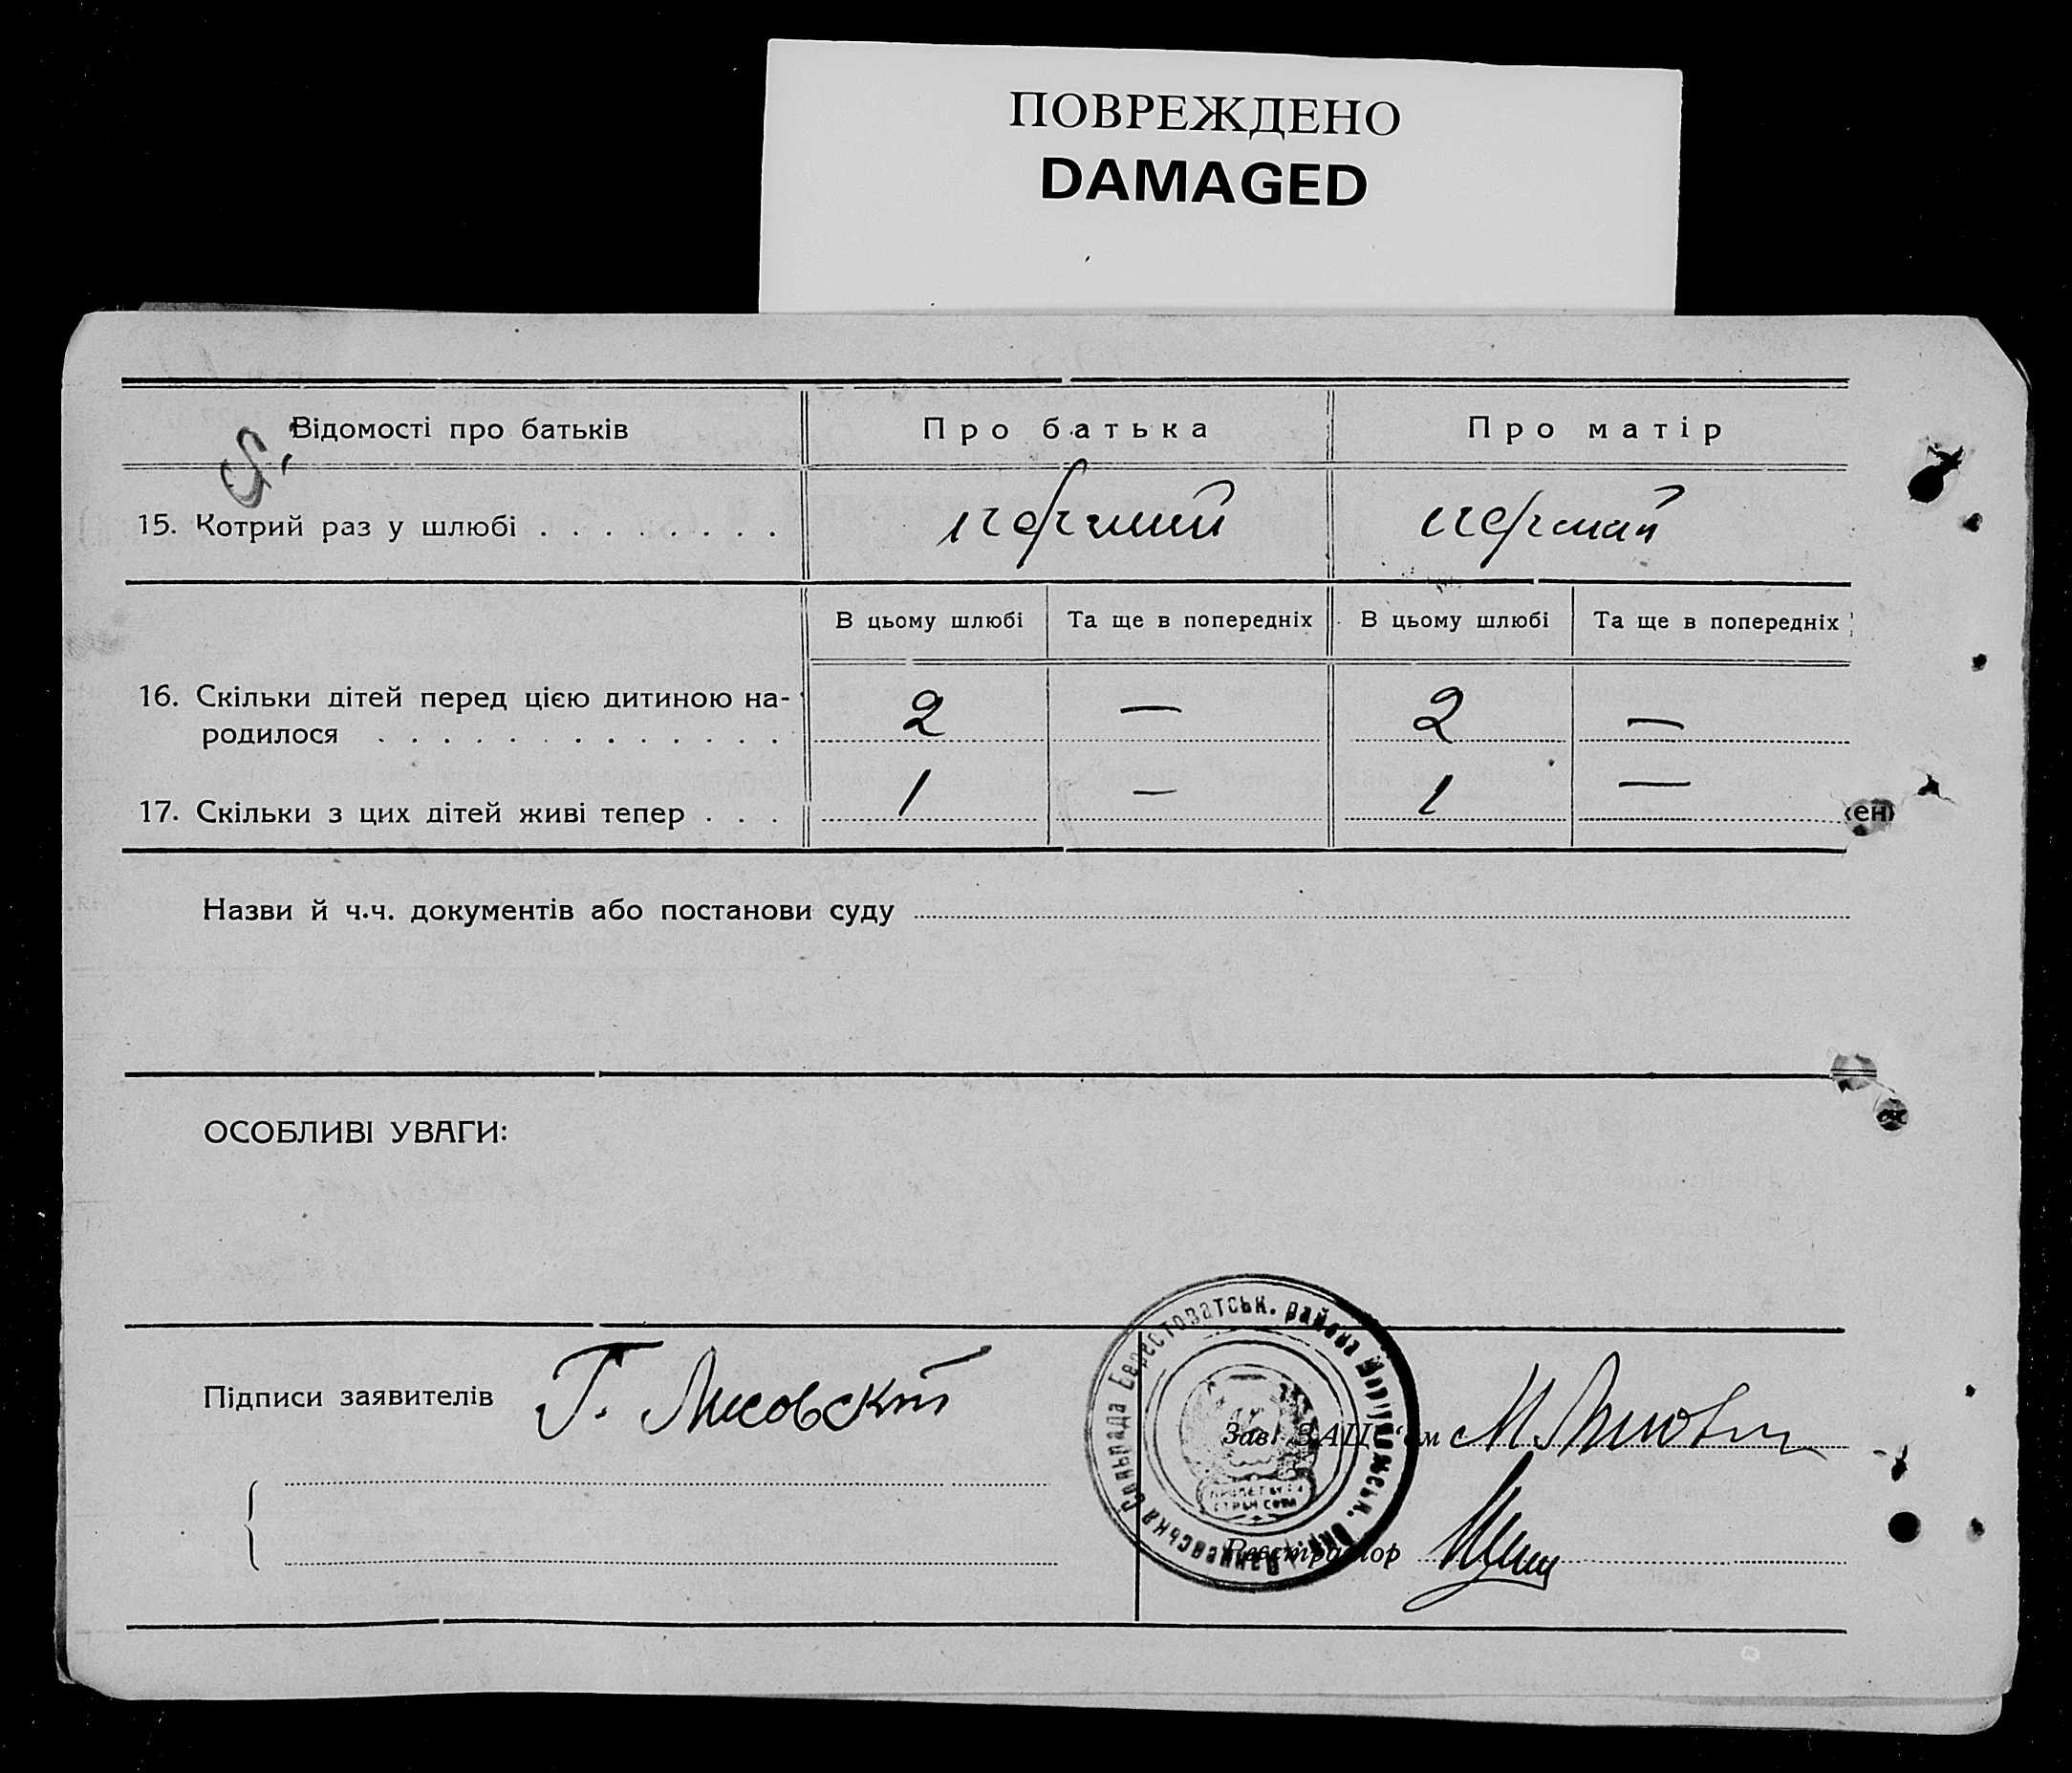 ПОВРЕЖДЕНО
DAMAGED
Відомості про батьків
Про батька
Про матір
15. Котрий раз у шлюбі . . . . . . . .
перший
перший
В цьому шлюбі
Та ще в попередніх
В цьому шлюбі
Та ще в попередніх
16. Скільки дітей перед цією дитиною на-
родилося . . . . . . . . . . . . .
2
—
2
—
17. Скільки з цих дітей живі тепер . . .
1
—
1
—
Назви й ч.ч. документів або постанови суду
ОСОБЛИВІ УВАГИ:
Підписи заявителів
Г. Лисовский
Сільрада Берестоватськ. района Маріупольськ. Окр.
Зав. ЗАЦ'ом
Реєстратор